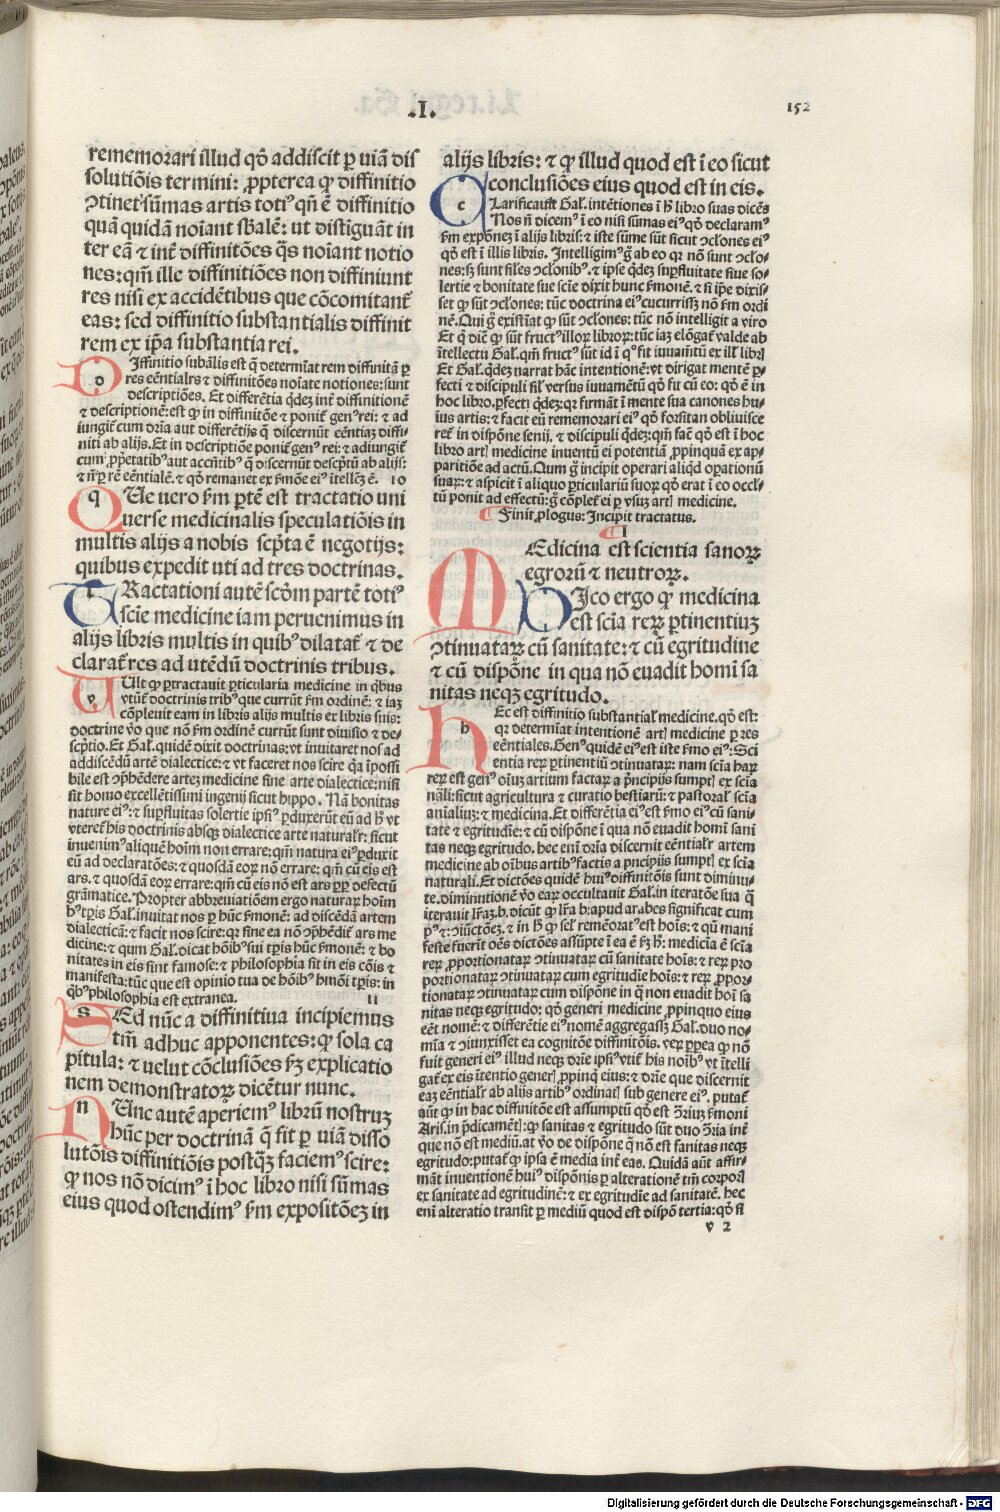 .I.
152
rememorari illud qď addiscit ꝑ uiā dis
solutiōis termini: ꝓpterea ꝙ diffinitio
ꝯtinet sūmas artis totiꝰ qn̄ ē diffinitio
quā quidā noīant sƀalē: ut distīguāt in
ter eā ⁊ int̄ diffinitōes q̄s noīant notio
nes: qm̄ ille diffinitiōes non diffiniunt
res nisi ex accidētibus que cōcomitant̄
eas: sed diffinitio substantialis diffinit
rem ex ip̄a substantia rei.
Diffinitio subālis est q̄ determīat rem diffinitā ꝑ
res eēntiales ⁊ diffinitōes noīate notiones: sunt
descriptiōes. Et differētia qďez int̄ diffinitionē
⁊ descriptionē: est ꝙ in diffinitōe
iungit̄ cum dr̄ia aut differētijs q̄ discernūt eēntiaz diffi-
niti ab alijs. Et in descriptiōe ponit̄ genꝰ rei: ⁊ adiungit̄
cum ꝓp̄etatibꝰ aut accn̄tibꝰ q̄ discernūt descp̄tū ab alijs:
10
Que vero ẜm ꝑtē est tractatio uni
uerse medicinalis speculatiōis in
multis alijs a nobis scp̄ta ē negotijs:
quibus expedit uti ad tres doctrinas.
Tractationi autē scďm partē totiꝰ
scīe medicine iam peruenimus in
alijs libris multis in quibꝰ dilatat̄ ⁊ de
clarat̄ res ad utēdū doctrinis tribus.
Vult ꝙ ꝑtractauit ꝑticularia medicine in qƀus
vtūt̄ doctrinis tribꝰ que currūt ẜm ordinē: ⁊ iaz
cōpleuit eam in libris alijs multis ex libris suis:
doctrine v̄o que nō ẜm ordinē currūt sunt diuisio ⁊ de-
scp̄tio. Et Gal. quidē dixit doctrinas: vt inuitaret nos ad
addiscēdū artē dialectice: ⁊ vt faceret nos scire q̄a īpossi
bile est ꝯp̄hēdere artez medicine sine arte dialectice: nisi
sit homo excellētissimi ingenij sicut hippo. Nā bonitas
nature eiꝰ: ⁊ suꝑfluitas solertie ipsiꝰ ꝑduxerūt eū ad hꝰ vt
vteret̄ his doctrinis absqꝫ dialectice arte naturalr̄: sicut
inuenimꝰ aliquē hoīm non errare: qm̄ natura eiꝰ ꝑduxit
eū ad declaratōes: ⁊ quosdā eoꝝ nō errare: qm̄ cū eis est
ars. ⁊ quosdā eoꝝ errare: qm̄ cū eis nō est ars ꝓꝑ defectū
grāmatice. Propter abbreuiatiōem ergo naturaꝝ hoīm
hꝰ tꝑis Gal. inuitat nos ꝑ hūc ẜmonē: ad discēdā artem
dialecticā: ⁊ facit nos scire: qꝛ sine ea nō ꝯp̄hēdit̄ ars me
dicine: ⁊ qum Gal. dicat hoībꝰ sui tꝑis hūc ẜmonē: ⁊ bo
nitates in eis sint famose: ⁊ philosophia sit in eis cōis ⁊
manifesta: tūc que est opinio tua de hoībꝰ hmōi tꝑis: in
qƀꝰ philosophia est extranea.
11
Sed nūc a diffinitiua incipiemus
tm̄ adhuc apponentes: ꝙ sola ca
pitula: ⁊ uelut cōclusiōes ẜꝫ explicatio
nem demonstratoꝝ dicētur nunc.
Nunc autē aperiemꝰ librū nostruꝫ
hūc per doctrinā q̄ fit ꝑ uiā disso
lutōis diffinitiōis postqꝫ faciemꝰ scire:
ꝙ nos nō dicimꝰ ī hoc libro nisi sūmas
eius quod ostendimꝰ ẜm expositōeꝫ in
alijs libris: ⁊ ꝙ illud quod est ī eo sicut
conclusiōes eius quod est in eis.
Clarificauit Gal. intētiones ī hꝰ libro suas dicēs
Nos n̄ dicemꝰ ī eo nisi sūmas eiꝰ qď declaramꝰ
ẜm expōnez ī alijs libris: ⁊ iste sūme sūt sicut ꝯclōnes eiꝰ
qď est ī illis libris. Intelligimꝰ ḡ ab eo qꝛ nō sunt ꝯclō-
nes: sꝫ sunt siles ꝯclonibꝰ. ⁊ ipse qďez suꝑfluitate siue so-
lertie ⁊ bonitate sue scīe dixit hunc ẜmonē. ⁊ si ip̄e dixis-
set ꝙ sūt ꝯclōnes: tūc doctrina eiꝰ cucurrissꝫ nō ẜm ordi
nē. Qui ḡ existīat ꝙ sūt ꝯclōnes: tūc nō intelligit a viro
Et q̄ dic̄ ꝙ sūt fructꝰ illoꝝ libroꝝ: tūc iaz elōgat̄ valde ab
ītellectu Gal. qm̄ fructꝰ sūt id ī qꝰ fit iuuam̄tū ex illꝰ libꝝ
Et Gal. qďez narrat hāc intentionē: vt dirigat mentē ꝑ-
fecti ⁊ discipuli sil̄ versus iuuamētū qď fit cū eo: qď ē in
hoc libro. ꝑfecti qďez: qꝛ firmāt̄ ī mente sua canones hu-
ius artis: ⁊ facit eū rememorari eiꝰ qď forsitan obliuisce
ret̄ in dispōne senij. ⁊ discipuli qďez: qm̄ fac̄ qď est ī hoc
libro art̄ medicine inuentū ei potentiū ꝓpinquā ex ap-
paritiōe ad actū. Qum ḡ incipit operari aliqď oꝑationū
suaꝝ: ⁊ aspicit ī aliquo ꝑticulariū suoꝝ qď erat ī eo occl-
tū ponit ad effectū: ḡ cōplet̄ ei ꝑ vsuꝫ art̄ medicine.
Finit ꝓlogus: Incipit tractatus.
I
Medicina est scientia sanoꝝ
egroꝝ ⁊ neutroꝝ.
Dico ergo ꝙ medicina
est scīa reꝝ ꝑtinentiuꝫ
ꝯtinuataꝝ cū sanitate: ⁊ cū egritudine
⁊ cū dispōne in qua nō euadit homī sa
nitas neqꝫ egritudo.
Hec est diffinitio substantial̄ medicine. qď est:
qꝛ determīat intentionē art̄ medicine ꝑ res
eēntiales. Genꝰ quidē eiꝰ est iste ẜmo eiꝰ: Sci
entia reꝝ ꝑtinentiū ꝯtinuataꝝ: nam scīa haꝝ
reꝝ est genꝰ oīuꝫ artium factaꝝ a p̄ncipijs sumpt̄ ex scīa
nāli: sicut agricultura ⁊ curatio bestiarū: ⁊ pastoral̄ scīa
anialiuꝫ: ⁊ medicina. Et differētia eiꝰ est ẜmo eiꝰ cū sani-
tate ⁊ egritudīe: ⁊ cū dispōne ī qua nō euadit homī sani
tas neqꝫ egritudo. hec eni dr̄ia discernit eēntialr̄ artem
medicine ab oībus artibꝰ factis a pncipijs sumpt̄ ex scīa
naturali. Et dictōes quidē huiꝰ diffinitōis sunt diminu-
te. diminutionē v̄o earꝝ occultauit Gal. in iteratōe sua q̄
iterauit lr̄aꝫ. b. dicūt ꝙ lr̄a b: apud arabes significat cum
feste fuerit oēs dictōes assūpte ī ea ē ẜꝫ h: medicīa ē scīa
reꝝ ꝓportionataꝝ ꝯtinuataꝝ cū sanitate hoīs: ⁊ reꝝ pro
portionataꝝ ꝯtinuataꝝ cum egritudīe hoīs: ⁊ reꝝ ꝓpor-
tionataꝝ ꝯtinuataꝝ cum dispōne in q̄ non euadit hoī sa
nitas neqꝫ egritudo: qď generi medicine ꝓpinquo eius
eēt nomē: ⁊ differētie eiꝰ nomē aggregassꝫ Gal. duo no-
mīa ⁊ ꝯiunxisset ea cognitōe diffinitōis. veꝝ ꝓꝑea ꝙ nō
fuit generi eiꝰ illud neqꝫ dr̄ie ipsiꝰ vtit̄ his noībꝰ vt ītelli
gat̄ ex eis ītentio gener̄ ꝓpinq̄ eius: ⁊ dr̄ie que discernit
eaꝫ eēntialr̄ ab alijs artibꝰ ordinat̄ sub genere eiꝰ. putat̄
aūt ꝙ in hac diffinitōe est assumptū qď est ꝯ̄riuꝫ ẜmoni
Aris. in p̄dicamēt̄: ꝙ sanitas ⁊ egritudo sūt duo ꝯ̄ria int̄
que nō est mediū. at v̄o de dispōne q̄ nō est sanitas neqꝫ
egritudo: putat̄ ꝙ ipsa ē media int̄ eas. Quidā aūt affir-
māt inuentionē huiꝰ dispōnis ꝑ alterationē tm̄ corporꝭ
ex sanitate ad egritudinē: ⁊ ex egritudīe ad sanitatē. hec
eni alteratio transit ꝑ mediū quod est dispō tertia: qď si
v 2
Digitalisierung gefördert durch die Deutsche Forschungsgemeinschaft - DFG